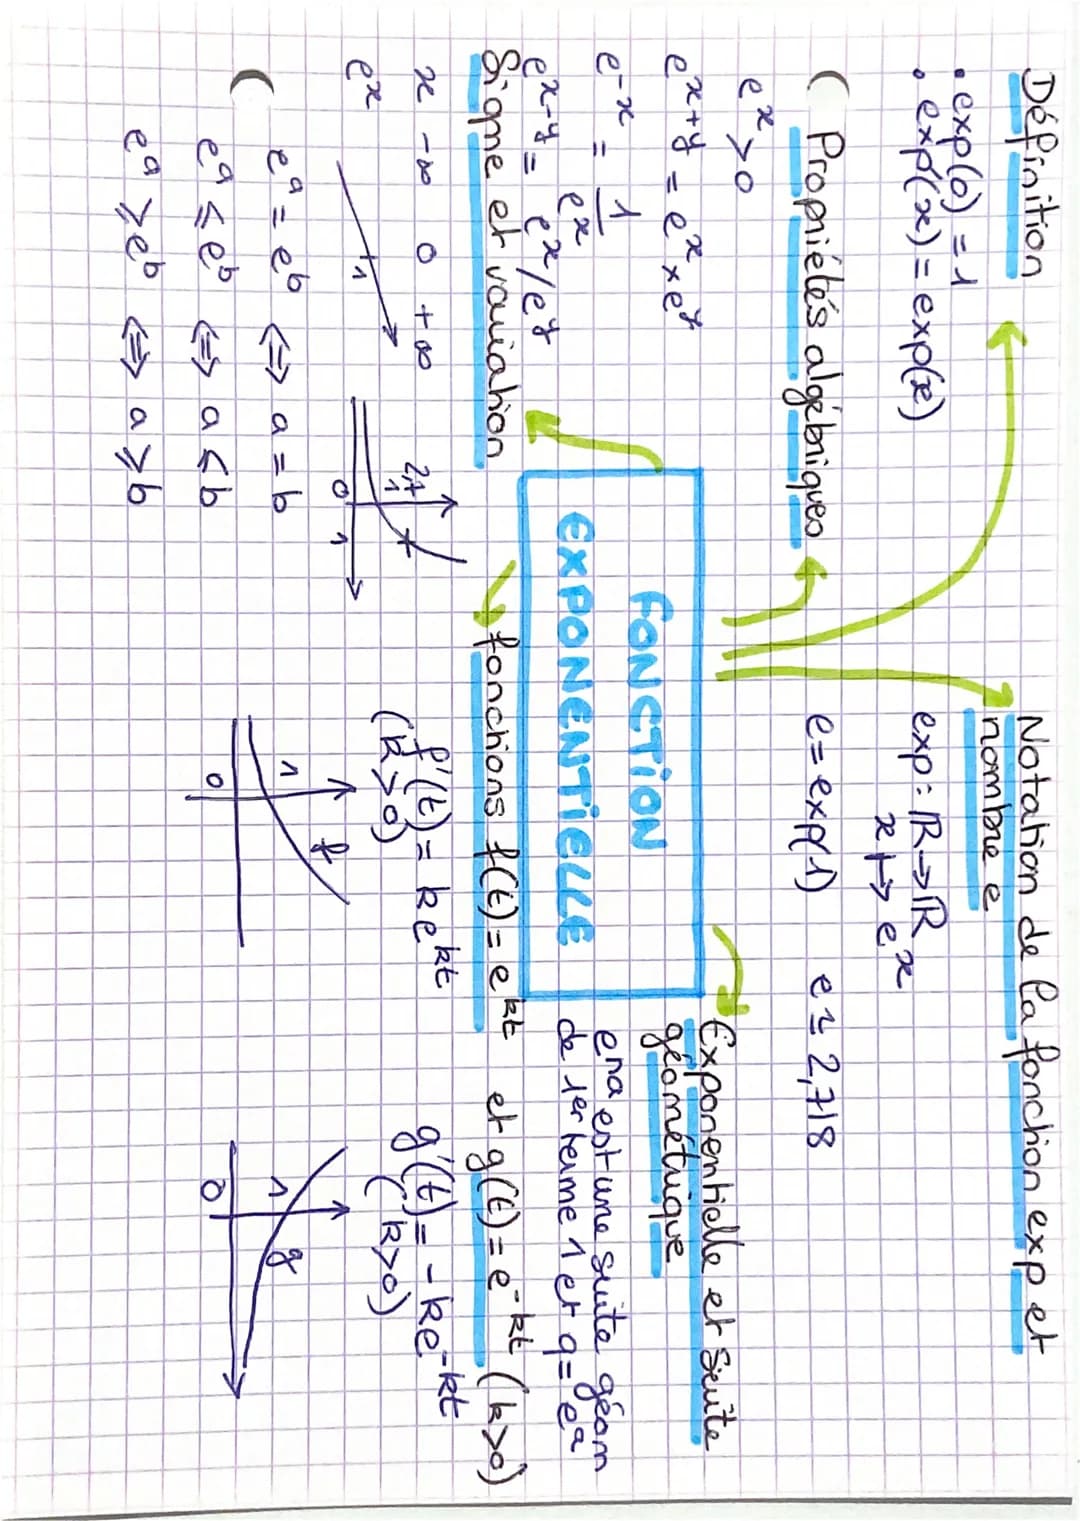 Définition
• exp(0) = 1
• exp'(x) = exp(x)
Propriétés algébriques
eˣ > 0
eˣ⁺ʸ = eˣ × eʸ
e⁻ˣ = 1/eˣ
eˣ⁻ʸ = eˣ/eʸ
Signe et variation
x -∞ 0 +∞
eˣ
1
2,7
1
0 1
eᵃ = eᵇ ⇔ a = b
eᵃ ≤ eᵇ ⇔ a ≤ b
eᵃ ≥ eᵇ ⇔ a ≥ b
FONCTION
EXPONENTIELLE
Notation de la fonction exp et
nombre e
exp: ℝ → ℝ
x ↦ eˣ
e = exp(1) e ≃ 2,718
Exponentielle et suite
géométrique
eⁿᵃ est une suite géom
de 1er terme 1 et q = eᵃ
fonctions f(t) = eᵏᵗ et g(t) = e⁻ᵏᵗ (k>0)
f'(t) = keᵏᵗ
(k>0)
1
f
0
g'(t) = -ke⁻ᵏᵗ
(k>0)
1
g
0